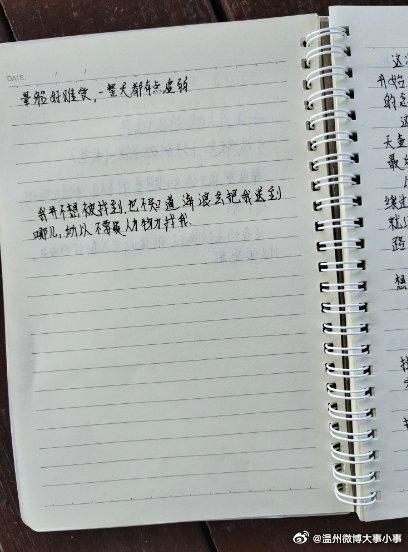 DATE: / /
晕船好难受,一整天都有点虚弱
我并不想被找到,也不知道海浪会把我送到
哪儿,所以不要费人力物力找我.
这
开始
的
这
天鱼
最
后
绕过
就
路
想
找
@温州微博大事小事